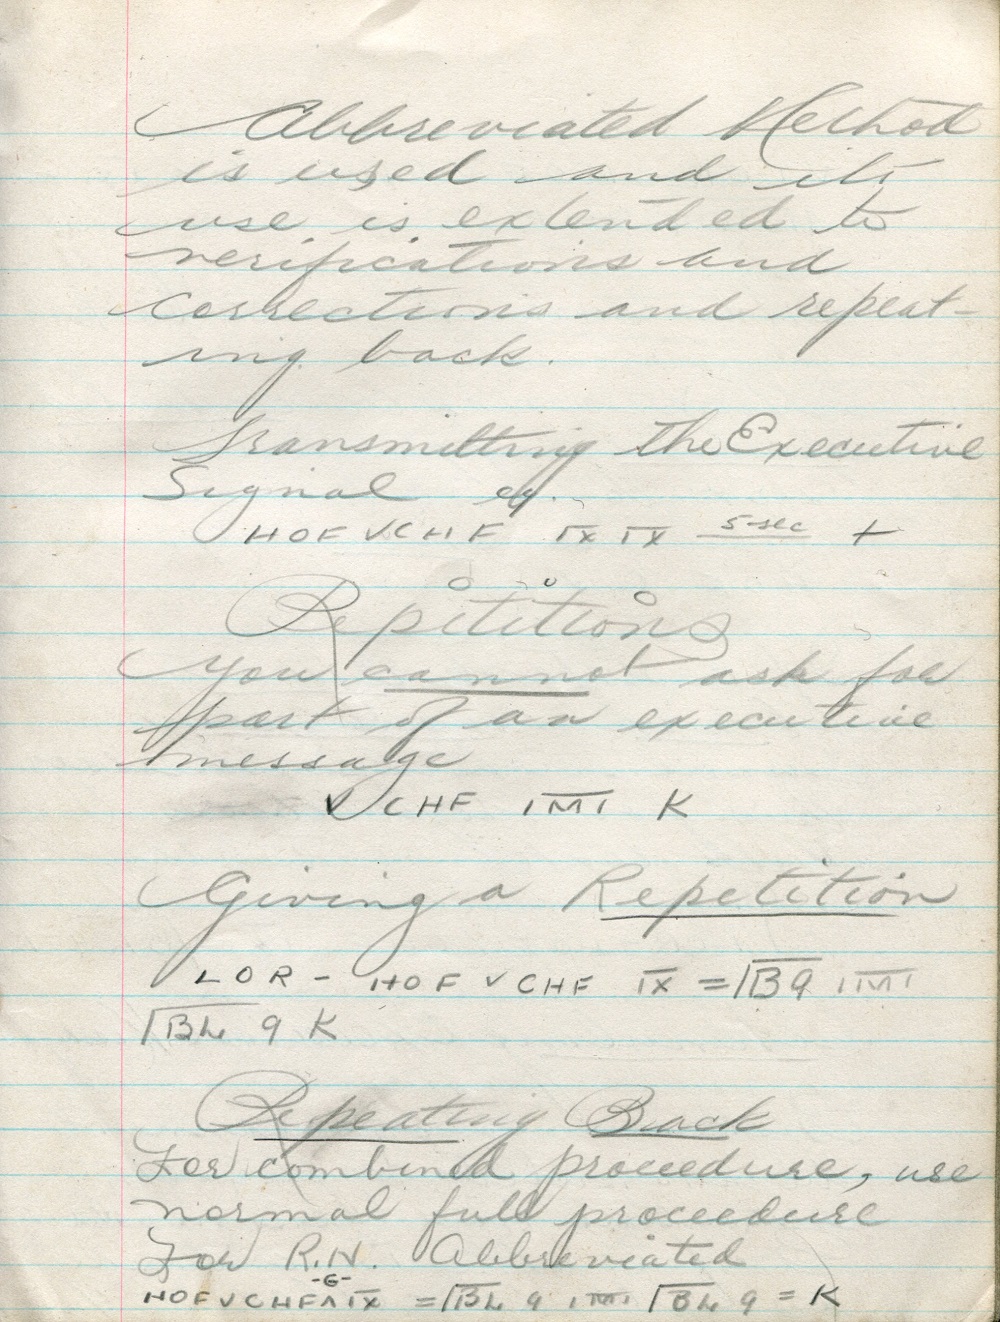 Abbreviated Method
is used and its
use is extended to
verifications and
corrections and repeat-
ing back.
Transmitting the Executive
Signal eg.
HOF V CHF I̅X̅ I̅X̅ 5-sec +
Repititions
You cannot ask for
part of an executive
message
V CHF I̅M̅I̅ K
Giving a Repetition
LOR - HOF V CHF I̅X̅ = 9 I̅M̅I̅
9 K
Repeating Back
For combined proceedure, use
normal full proceedure
For R.N. Abbreviated
-G-
HOF V CHF ^ I̅X̅ = 9 I̅M̅I̅ 9 = K